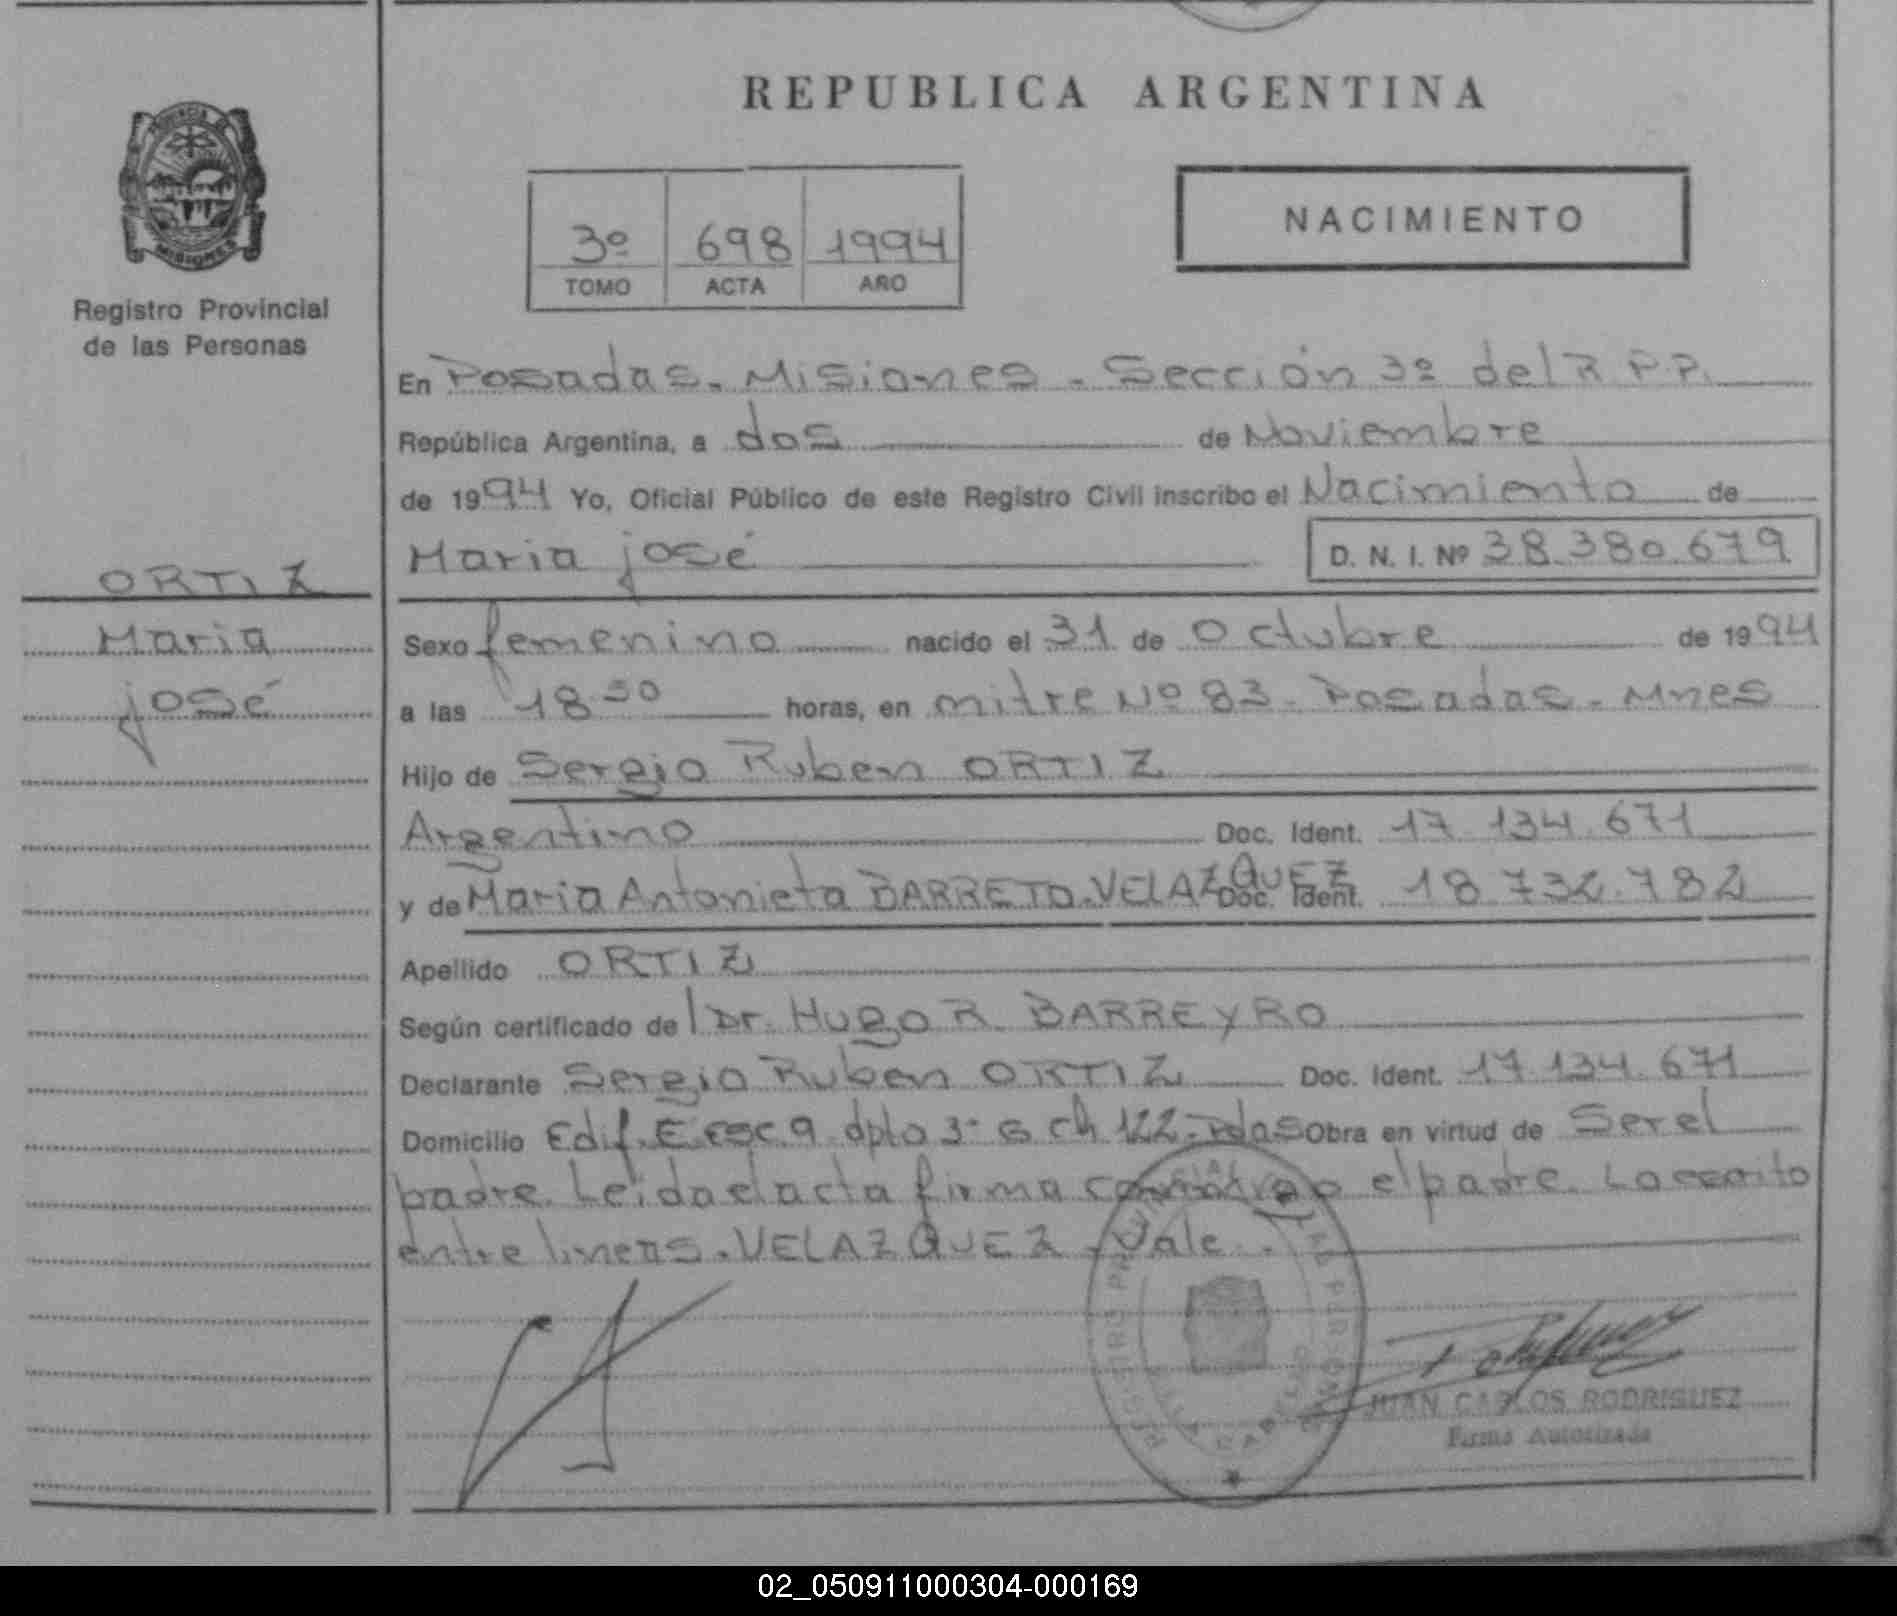 REPUBLICA ARGENTINA
PROVINCIA DE
MISIONES
Registro Provincial
de las Personas
3º 698 1994
TOMO ACTA AÑO
NACIMIENTO
En Posadas. Misiones. Sección 3º del R.P.P.
República Argentina, a dos de Noviembre
de 1994 Yo, Oficial Público de este Registro Civil inscribo el Nacimiento de
Maria josé D. N. I. Nº 38.380.679
ORTIZ
Maria
josé
Sexo femenino nacido el 31 de Octubre de 1994
a las 18 30 horas, en mitre Nº 83. Posadas. Mnes
Hijo de Sergio Ruben ORTIZ
Argentino Doc. Ident. 17.134.671
y de Maria Antonieta BARRETO. VELAZQUEZ Doc. Ident. 18.732.782
Apellido ORTIZ
Según certificado del Dr. Hugo R. BARREYRO
Declarante Sergio Ruben ORTIZ Doc. Ident. 17.134.671
Domicilio Edif. E esc. 9. dpto 3º G ch 122. Pdas Obra en virtud de Ser el
padre. Leida el acta firma conmigo el padre. Lo escrito
entre lineas. VELAZQUEZ. Vale.
JUAN CARLOS RODRIGUEZ
Firma Autorizada
02_050911000304-000169